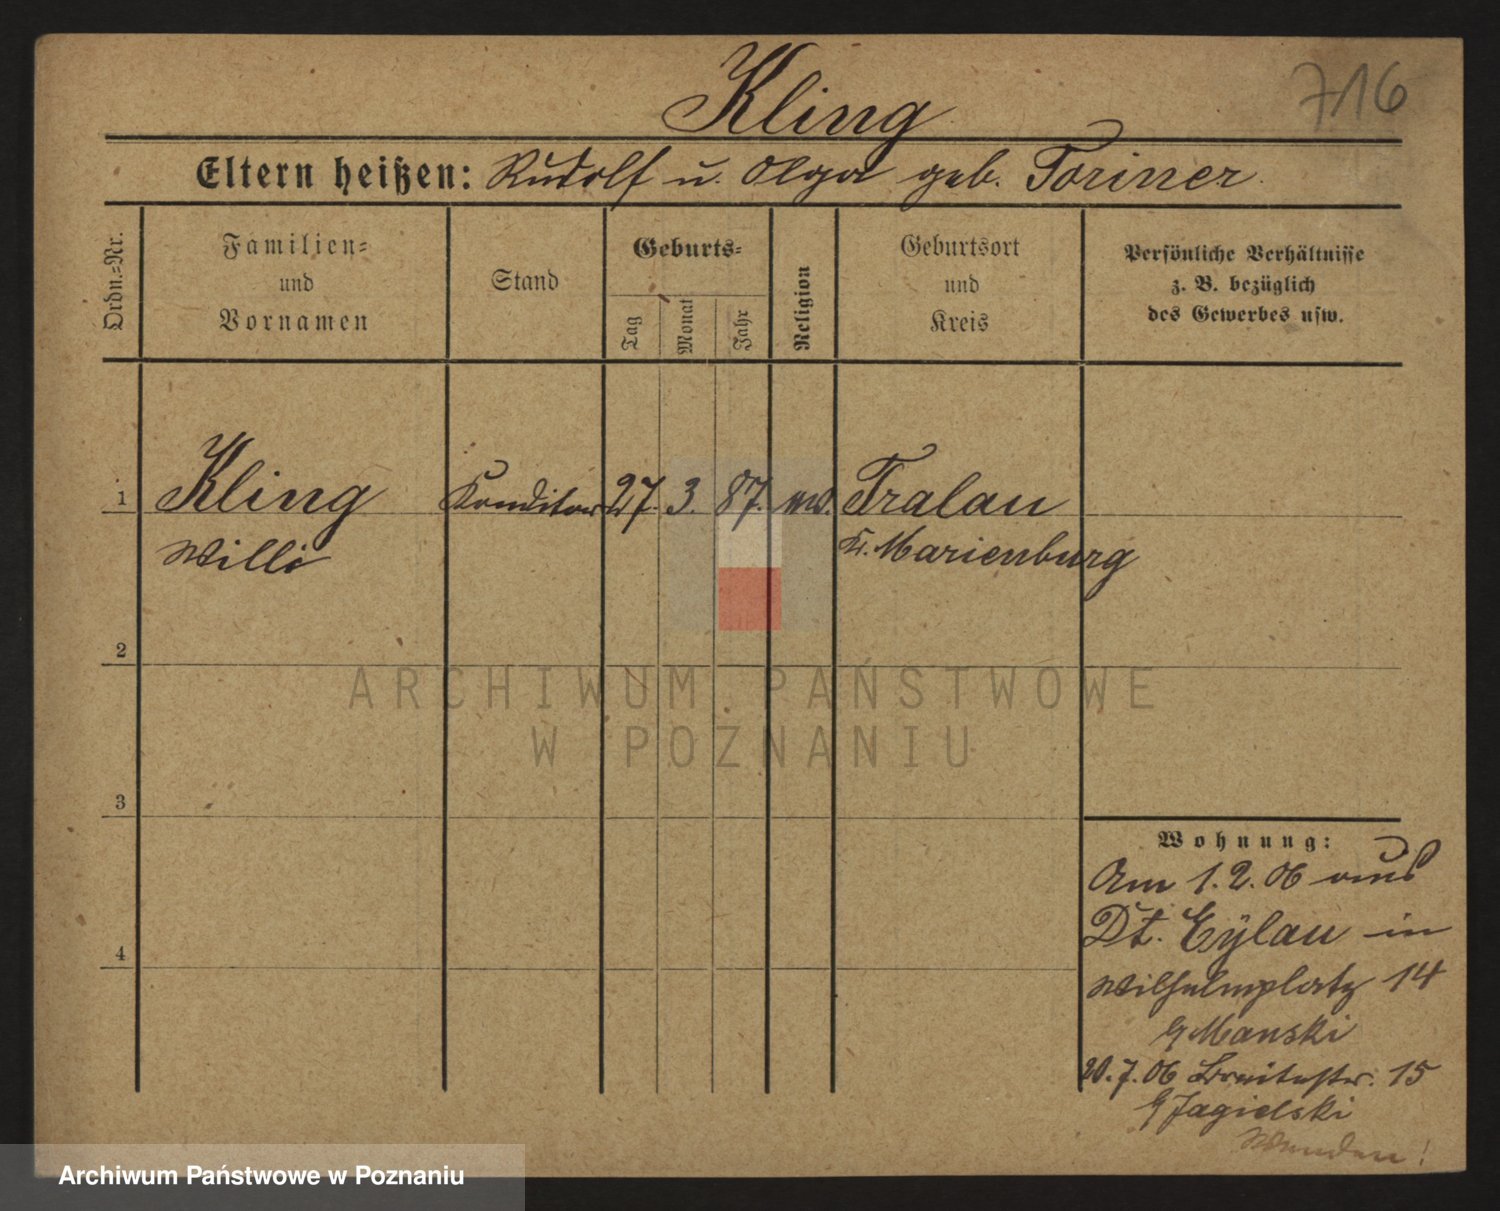 Kling
716
Eltern heißen: Rudolf u. Olga geb. Toriner
Ordn.-Nr.
Familien-
und
Vornamen
Stand
Geburts-
Tag
Monat
Jahr
Religion
Geburtsort
und
Kreis
Persönliche Verhältnisse
z. B. bezüglich
des Gewerbes usw.
1 Kling Konditor 27. 3. 87. Tralau
Willi Kr. Marienburg
2
3
4
Wohnung:
Am 1. 2. 06 aus
Dt. Eylau in
Wilhelmplatz 14
Manski
20. 7. 06 Breitestr. 15
Jagielski
Wenden!
ARCHIWUM PAŃSTWOWE
W POZNANIU
Archiwum Państwowe w Poznaniu